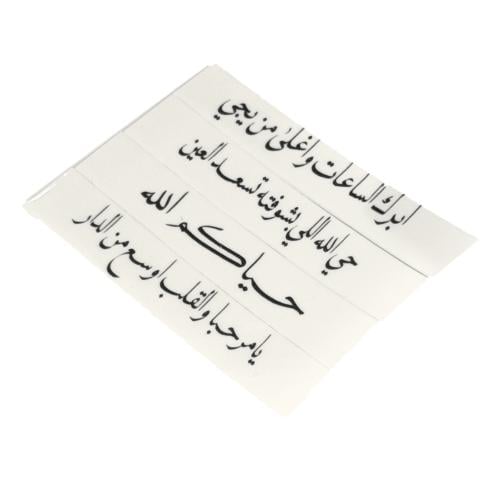 ابرك الساعات واغلى من يجي
حي الله اللي بشوفته تسعد العين
حياكم الله
يا مرحبا والقلب اوسع من الدار